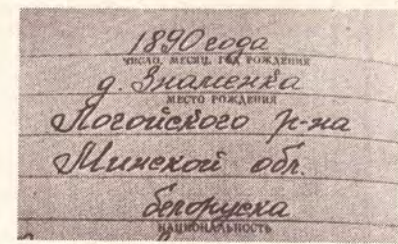 1890 года
ЧИСЛО, МЕСЯЦ, ГОД РОЖДЕНИЯ
д. Знаменка
МЕСТО РОЖДЕНИЯ
Логойского р-на
Минской обл.
белоруска
НАЦИОНАЛЬНОСТЬ